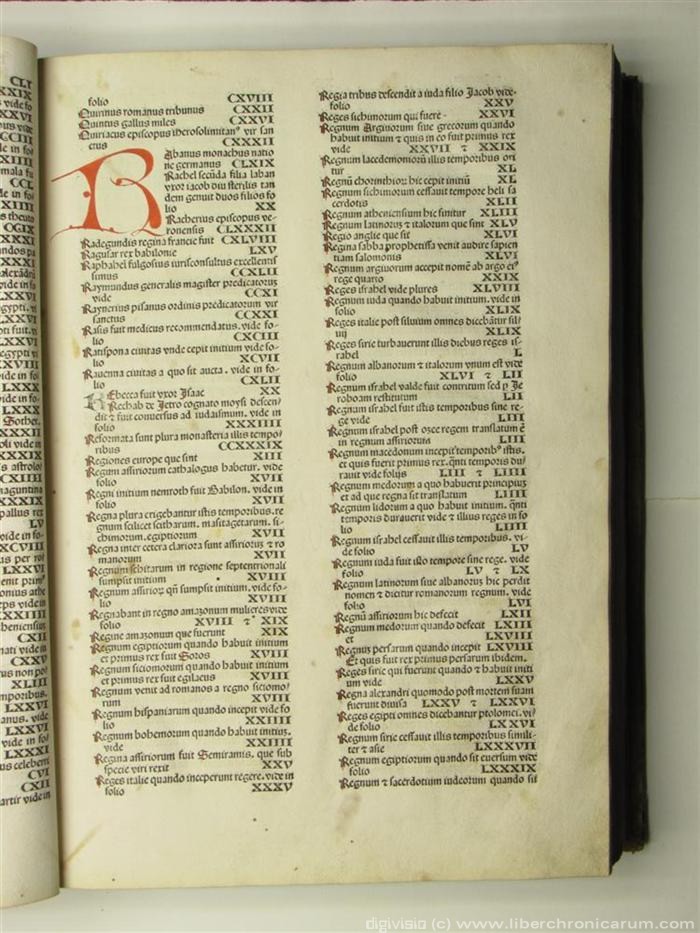 CLI
XXIX
s vide fo
XXXV
CCIII
de in fo
XIIII
mala fu
CCL
de in foi
XIIII
CCIX
XXXI
vide in fo
LXXVI
egypti. vi
LXXVI
pti fuit. vi
LXXVI
egypti vi
XXVIII
de in fo
LXXX
XXXII
oli vide in
XXXIIII
s astrolo
CXIIII
maguntina
XXXIX
pallus rex
LV
vide in
XCVIII
us per ro
LXVI
onius athe
eps vide in
XXXIIII
CXII
nati vide in
CXXV
XLIII
LXXVI
anus. vide
LXXVI
vide in fo
LXXXI
CVI
CII
artir vide in
folio CXVIII
Quirinus romanus tribunus CXXII
Quintus gallus miles CXXVI
Quiriacus episcopus iherosolimitanꝰ vir san
ctus CXXXII
RAbanus monachus natio
ne germanus CLXIX
Rachel secũda filia laban
vxor iacob diu sterilis tan
dem genuit duos filios fo
lio XX
Racherius episcopus ve-
ronensis CLXXXII
Radegundis regina francie fuit CXLVIII
Ragusar rex babilonie LXV
Raphahel fulgosius iurisconsultus excellentis
simus CCXLII
Raymundus generalis magister predicatorũ
vide CCXI
Raynerius pisanus ordinis predicatorum vir
sanctus CCXXI
Rasis fuit medicus recommendatus. vide fo-
lio CXCIII
Ratispona ciuitas vnde cepit initium vide fo-
lio XCVII
Rauenna ciuitas a quo sit aucta. vide in fo-
lio CXLII
REbecca fuit vxor Isaac XX
Rechab de Jetro cognato moysi descen-
dit ⁊ fuit conuersus ad iudaismum. vide in
folio XXXIIII
Reformata sunt plura monasteria illis tempo-
ribus CCXXXIX
Regiones europe que sint XIII
Regum assiriorum cathalogus habetur. vide
folio XVII
Regni initium nemroth fuit Babilon. vide in
folio XVII
Regna plura erigebantur istis temporibus. re
gnum scilicet scitharum. masitagetarum. si-
chimorum. egiptiorum XVII
Regna inter cetera clariora sunt assiriorũ ⁊ ro
manorum XVII
Regnum schitarum in regione septentrionali
sumpsit initium XVIII
Regnum assiriorꝝ qñ sumpsit initium. vide fo-
lio XVIII
Regnabant in regno amazonum mulieres vide
folio XVIII ⁊ XIX
Regine amazonum que fuerunt XIX
Regnum egiptiorum quando habuit initium
et primus rex fuit Soros XVIII
Regnum siciomorum quando habuit initium
et primus rex fuit egilacus XVIII
Regnum venit ad romanos a regno siciomo-
rum XVIII
Regnum hispaniarum quando incepit vide fo
lio XXIIII
Regnum bohemorum quando habuit initiũ.
vide XXIIII
Regina assiriorum fuit Semiramis. que sub
specie viri rexit XXV
Reges italie quando inceperunt regere. vide in
folio XXXV
Regia tribus descendit a iuda filio Jacob vide
folio XXV
Reges sichimorum qui fuere XXVI
Regnum Argiuorum siue grecorum quando
habuit initium ⁊ quis in eo fuit primus rex
vide XXVII ⁊ XXIX
Regnum lacedemoniorũ illis temporibus ori
tur XL
Regnũ chorinthiorũ hic cepit initiũ XL
Regnum sichimorum cessauit tempore heli sa
cerdotis XLII
Regnum atheniensium hic finitur XLIII
Regnum latinorũ ⁊ italorum que sint XLV
Regio anglie que sit XLVI
Regina sabba prophetissa venit audire sapien
tiam salomonis XLVI
Regnum argiuorum accepit nomẽ ab argo eiꝰ
rege quarto XXIX
Reges israhel vide plures XLVIII
Regnum iuda quando habuit initium. vide in
folio XLIX
Reges italie post siluium omnes dicebãtur sil
uij XLIX
Reges sirie turbauerunt illis diebus reges is-
rahel L
Regnum albanorum ⁊ italorum vnum est vide
folio XLVI ⁊ LII
Regnum israhel valde fuit contritum sed p Je
roboam restitutum LII
Regnum israhel fuit istis temporibus sine re-
ge vide LIII
Regnum israhel post ozee regem translatum ẽ
in regnum assiriorum LIII
Regnum macedonum incepit temporibꝰ istis.
et quis fuerit primus rex. qñti temporis du-
rauit vide folijs LIII ⁊ LIIII
Regnum medorum a quo habuerit principiũ
et ad que regna sit translatum LIIII
Regnum lidorum a quo habuit initium. qñti
temporis durauerit vide ⁊ illius reges in fo
lio LIIII
Regnum israhel cessauit illis temporibus. vi-
de folio LV
Regnum iuda fuit isto tempore sine rege. vide
folio LV ⁊ LX
Regnum latinorum siue albanorũ hic perdit
nomen ⁊ dicitur romanorum regnum. vide
folio LVI
Regnũ assiriorum hic defecit LXII
Regnum medorum quando defecit LXIII
et LXVIII
Regnũ persarum quando incepit LXVIII
Et quis fuit rex primus persarum ibidem.
Reges sirie qui fuerunt quando ⁊ habuit initi
um vide LXXV
Regna alexandri quomodo post mortem suam
fuerunt diuisa LXXV ⁊ LXXVI
Reges egipti omnes dicebantur ptolomei. vi
de folio LXXVI
Regnum sirie cessauit illis temporibus simili-
ter ⁊ asie LXXXVII
Regnum egiptiorum quando sit euersum vide
folio LXXXIX
Regnum ⁊ sacerdotium iudeorum quando sit
digivisio (c) www.liberchronicarum.com